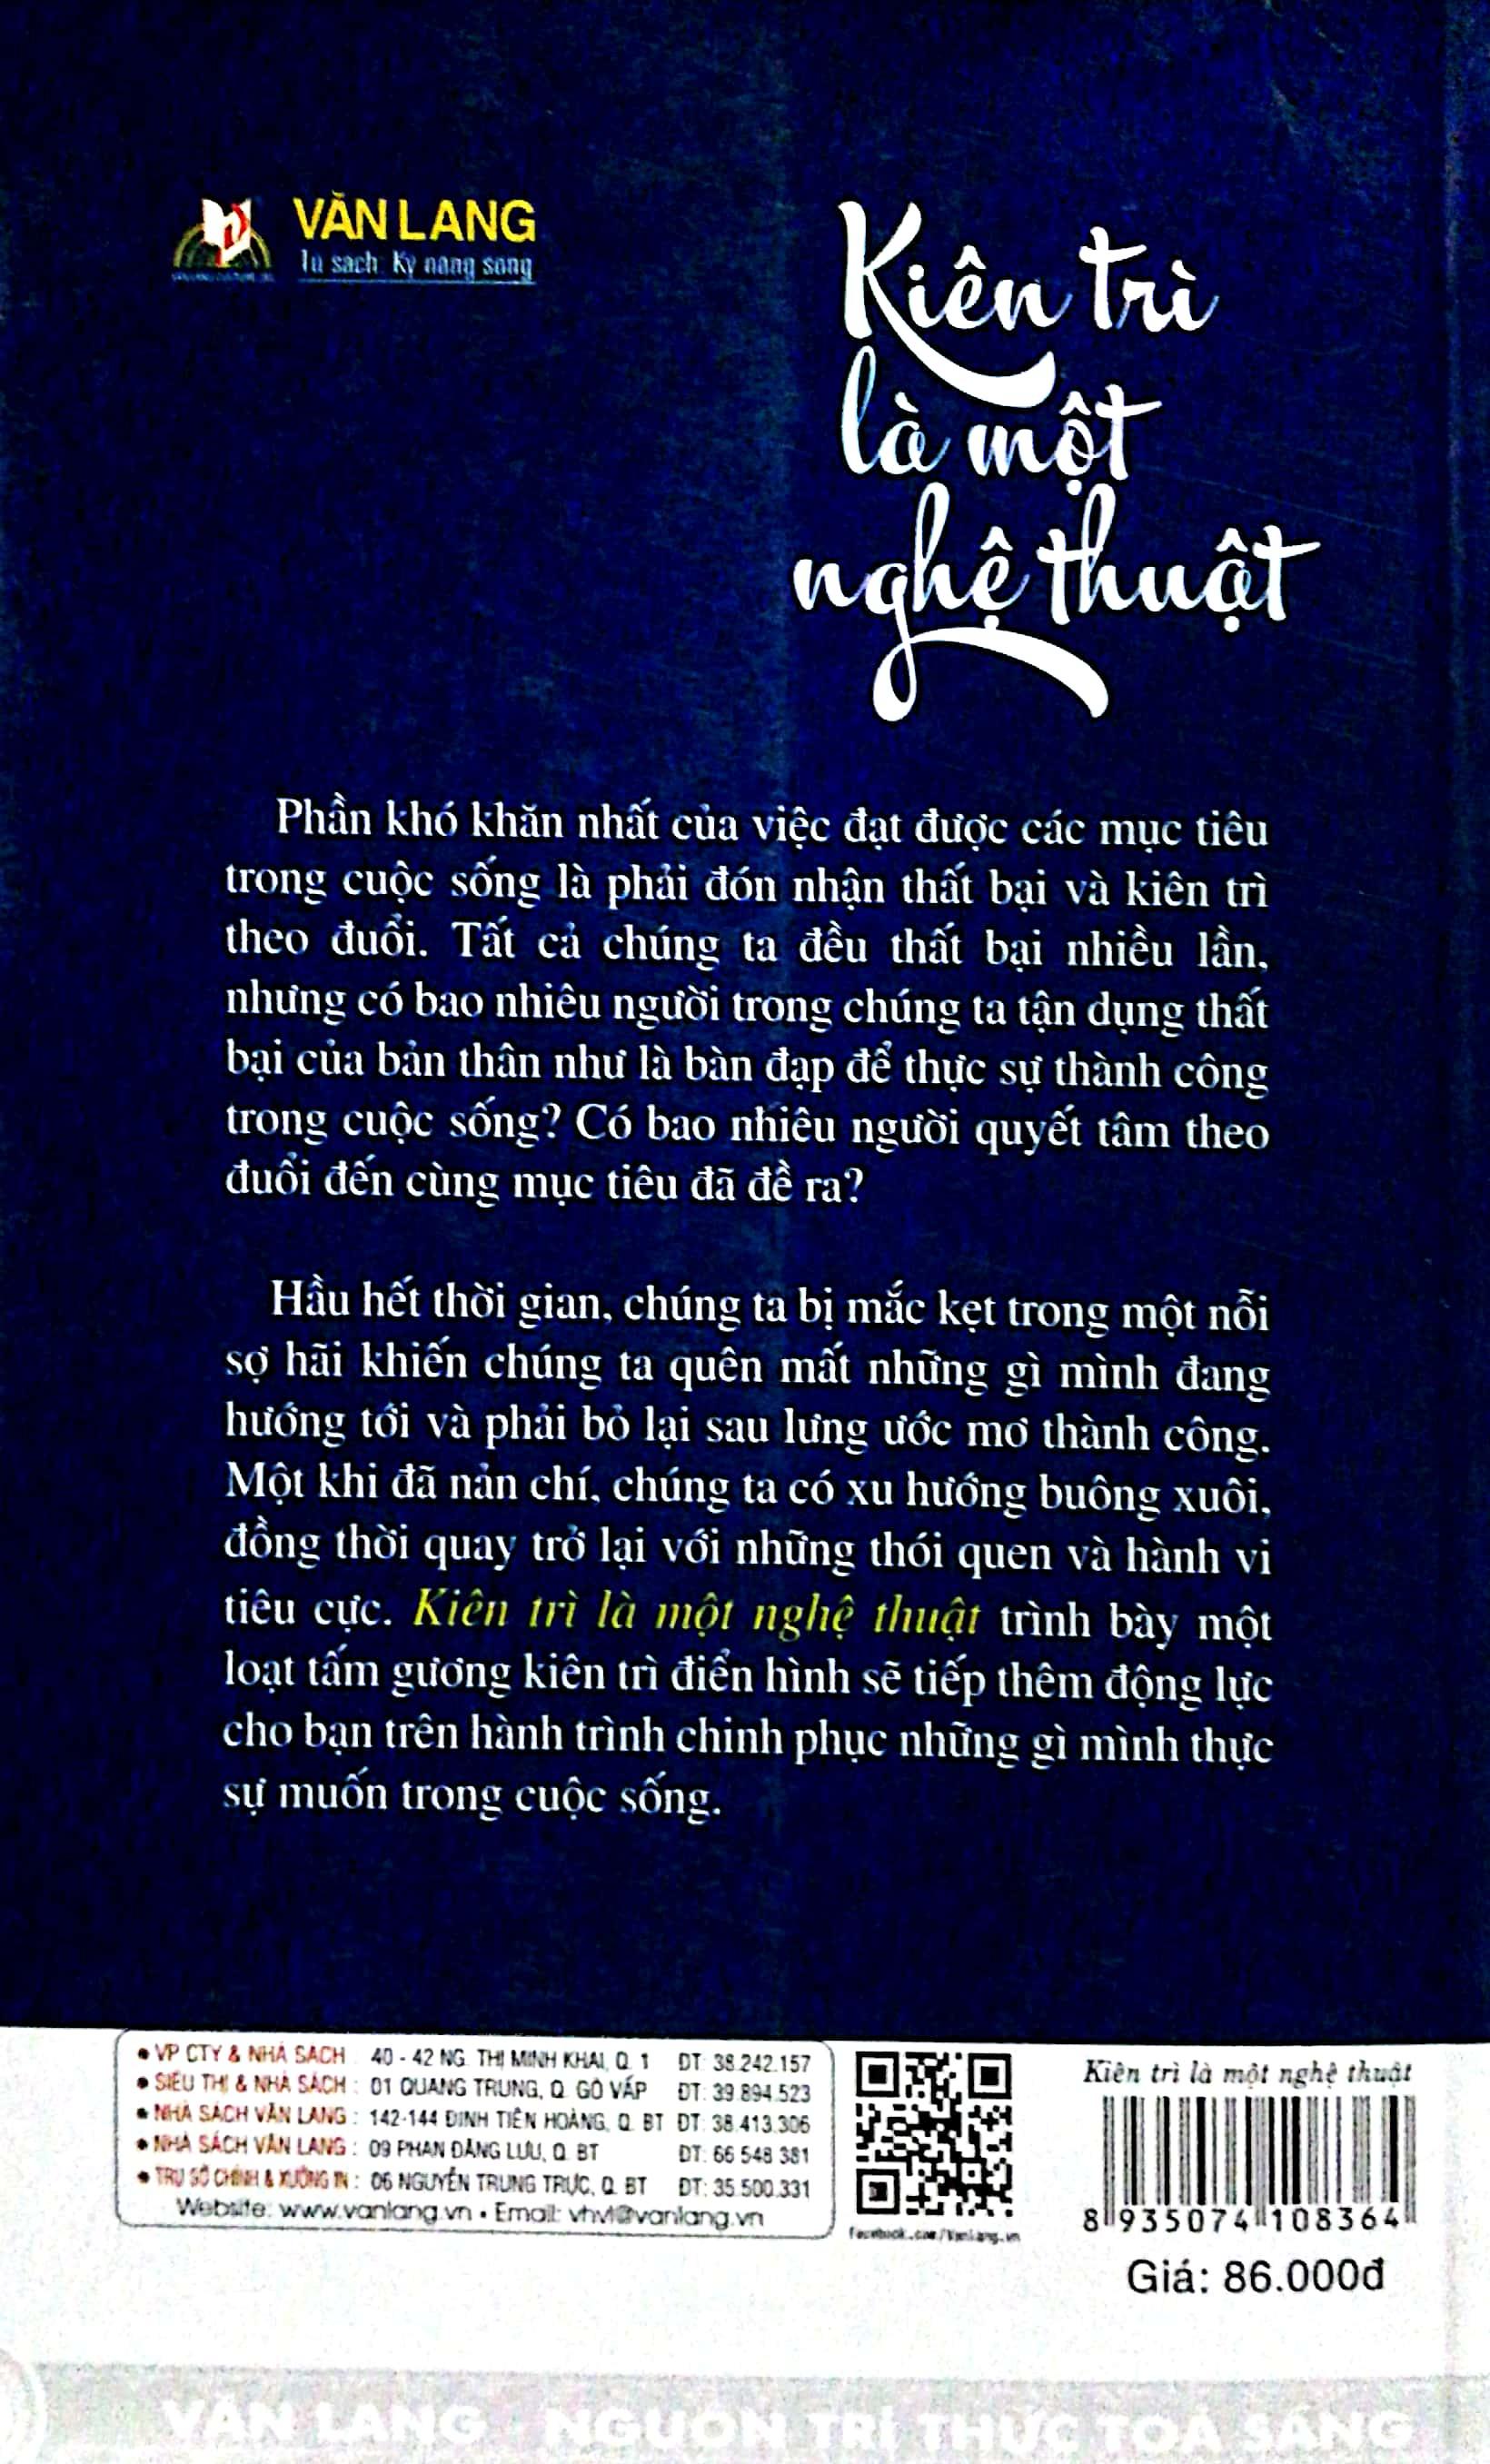 VĂN LANG
Tủ sách: Kỹ năng sống
Kiên trì
là một
nghệ thuật
Phần khó khăn nhất của việc đạt được các mục tiêu
trong cuộc sống là phải đón nhận thất bại và kiên trì
theo đuổi. Tất cả chúng ta đều thất bại nhiều lần,
nhưng có bao nhiêu người trong chúng ta tận dụng thất
bại của bản thân như là bàn đạp để thực sự thành công
trong cuộc sống? Có bao nhiêu người quyết tâm theo
đuổi đến cùng mục tiêu đã đề ra?
Hầu hết thời gian, chúng ta bị mắc kẹt trong một nỗi
sợ hãi khiến chúng ta quên mất những gì mình đang
hướng tới và phải bỏ lại sau lưng ước mơ thành công.
Một khi đã nản chí, chúng ta có xu hướng buông xuôi,
đồng thời quay trở lại với những thói quen và hành vi
tiêu cực. Kiên trì là một nghệ thuật trình bày một
loạt tấm gương kiên trì điển hình sẽ tiếp thêm động lực
cho bạn trên hành trình chinh phục những gì mình thực
sự muốn trong cuộc sống.
• VP CTY & NHÀ SÁCH : 40 - 42 NG. THỊ MINH KHAI, Q. 1 ĐT: 38.242.157
• SIÊU THỊ & NHÀ SÁCH : 01 QUANG TRUNG, Q. GÒ VẤP ĐT: 39.894.523
• NHÀ SÁCH VĂN LANG : 142-144 ĐINH TIÊN HOÀNG, Q. BT ĐT: 38.413.306
• NHÀ SÁCH VĂN LANG : 09 PHAN ĐĂNG LƯU, Q. BT ĐT: 66.548.381
• TRỤ SỞ CHÍNH & XƯỞNG IN : 06 NGUYỄN TRUNG TRỰC, Q. BT ĐT: 35.500.331
Website: www.vanlang.vn • Email: vhvl@vanlang.vn
facebook.com/VanLang.vn
Kiên trì là một nghệ thuật
8 935074 108364
Giá: 86.000đ
VĂN LANG - NGUỒN TRI THỨC TOẢ SÁNG